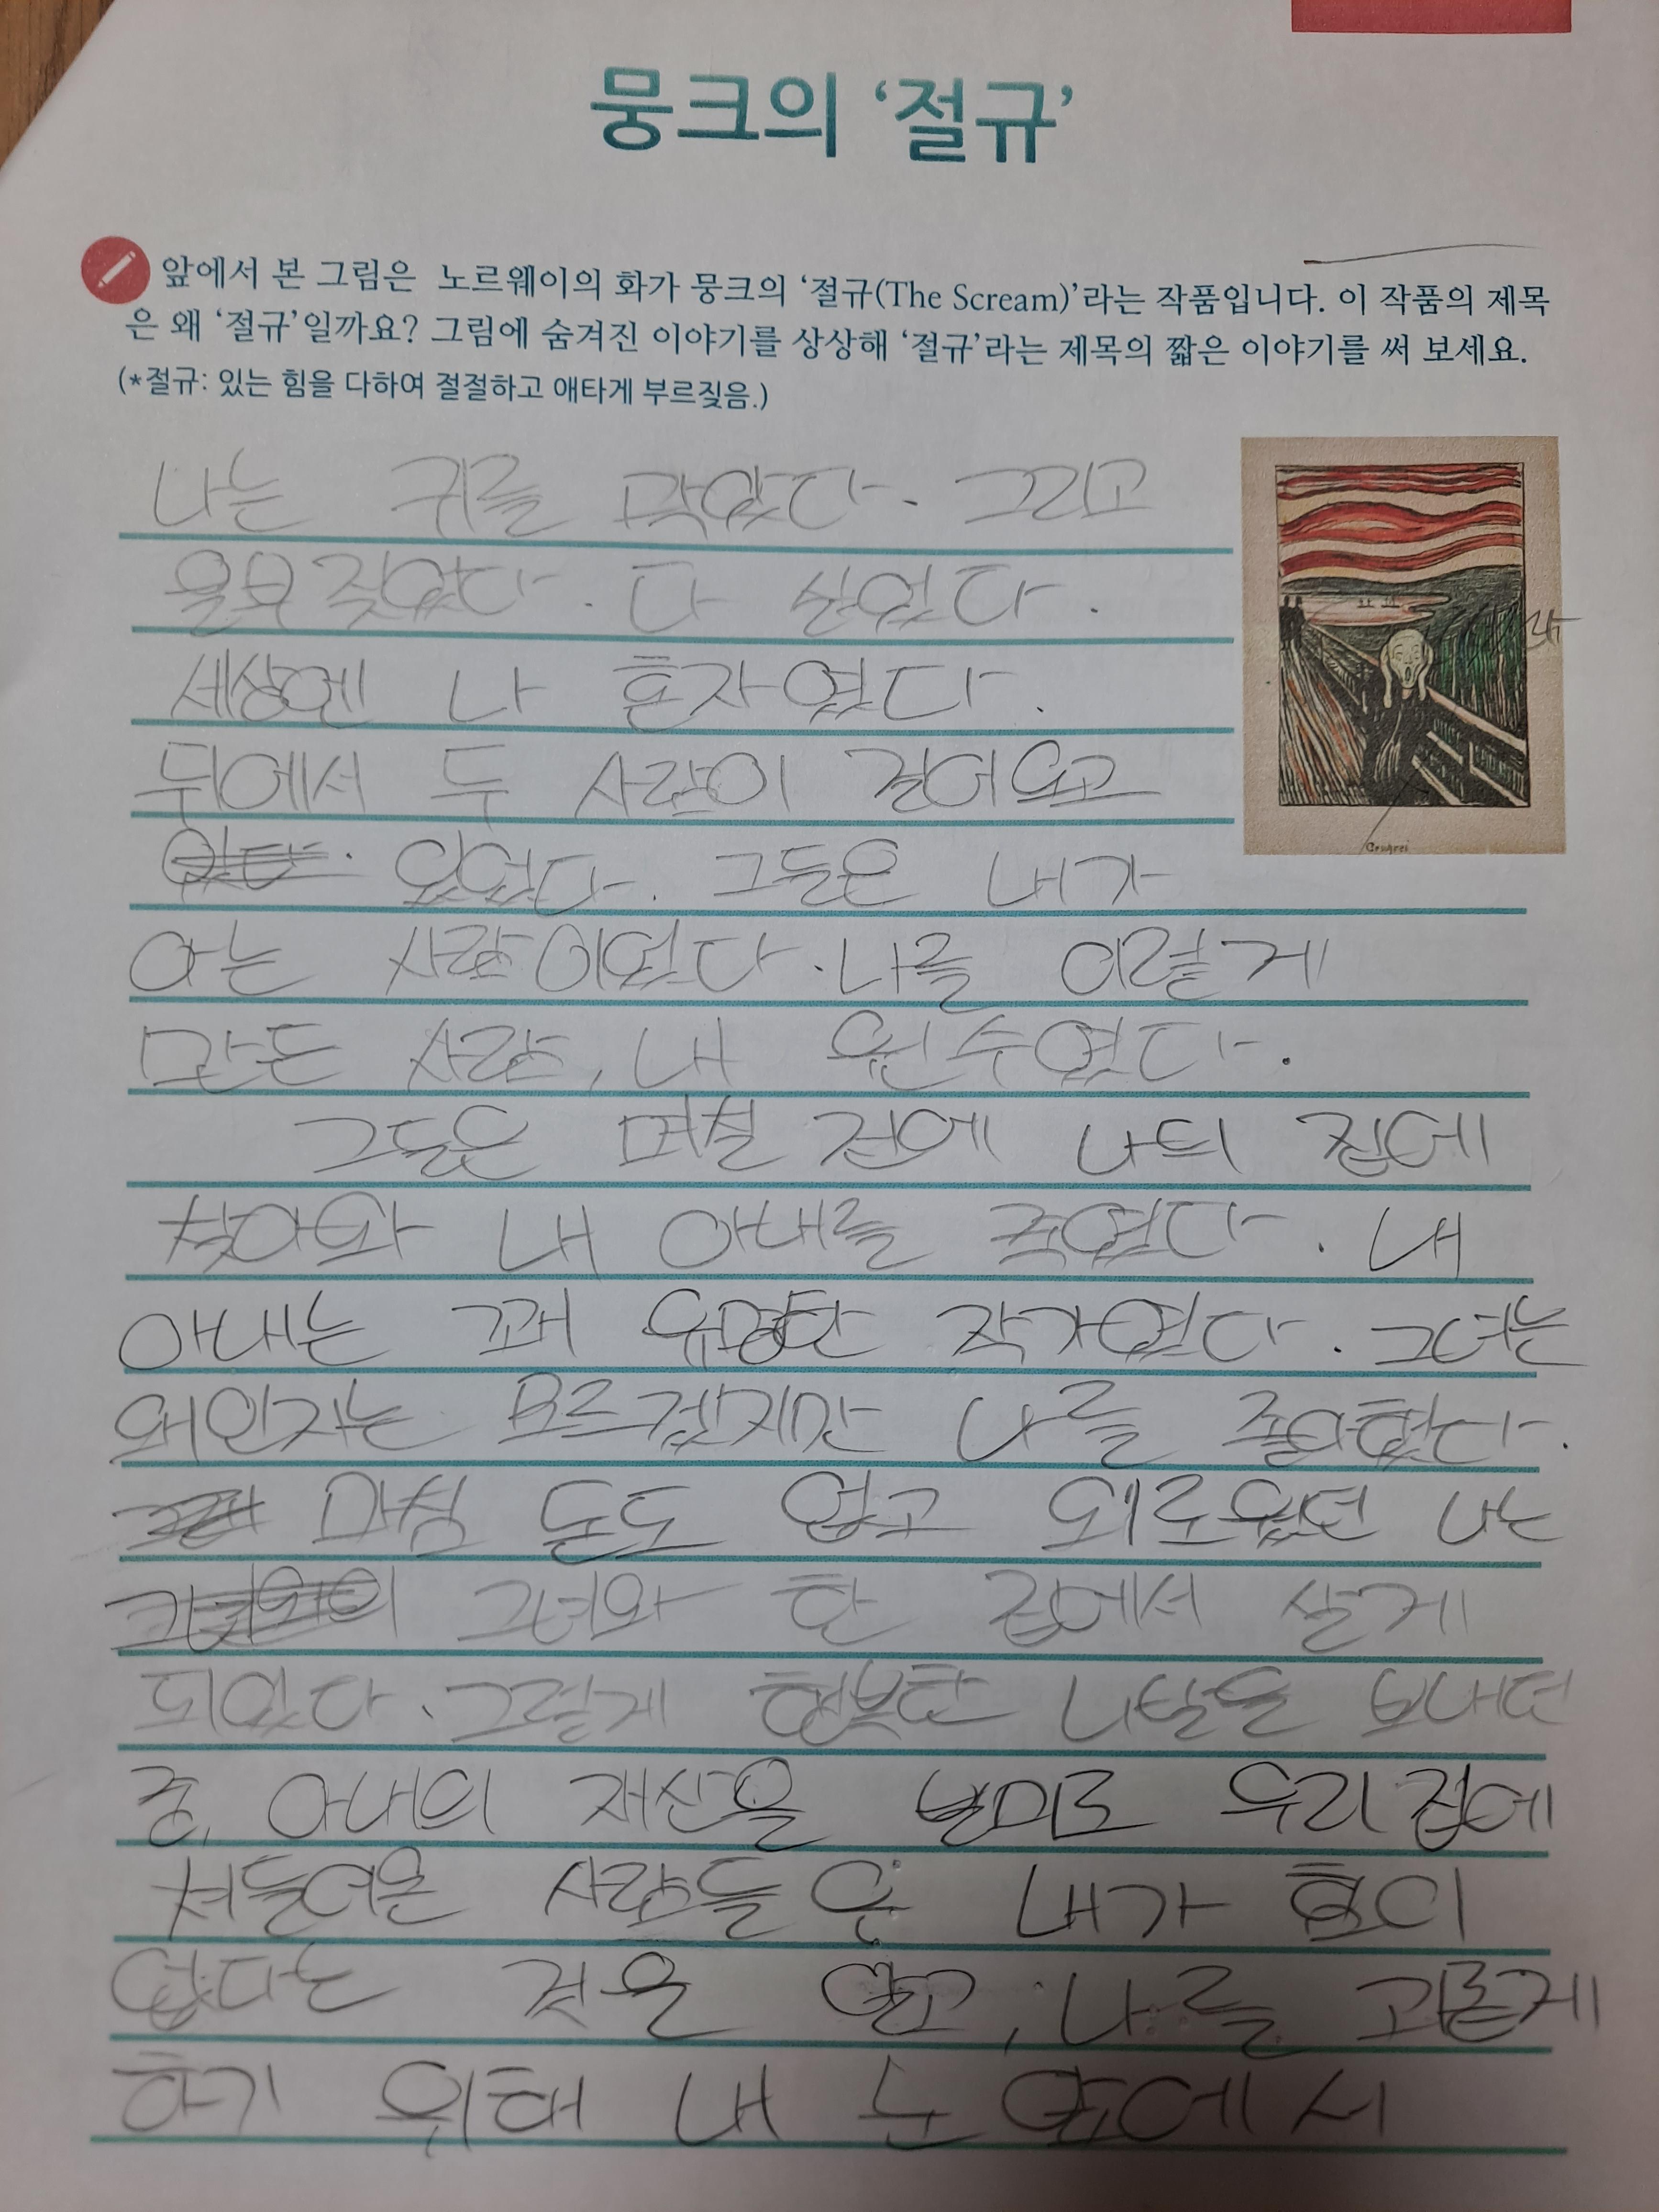 뭉크의 ‘절규’
앞에서 본 그림은 노르웨이의 화가 뭉크의 ‘절규(The Scream)’라는 작품입니다. 이 작품의 제목
은 왜 ‘절규’일까요? 그림에 숨겨진 이야기를 상상해 ‘절규’라는 제목의 짧은 이야기를 써 보세요.
(*절규: 있는 힘을 다하여 절절하고 애타게 부르짖음.)
나는 귀를 막았다. 그리고
울부짖었다. 다 싫었다.
세상엔 나 혼자였다.
뒤에서 두 사람이 걸어오고
있었다. 그들은 내가
아는 사람이었다. 나를 이렇게
만든 사람, 내 원수였다.
그들은 며칠 전에 나의 집에
찾아와 내 아내를 죽였다. 내
아내는 꽤 유명한 작가였다. 그녀는
왜인지는 모르겠지만 나를 좋아했다.
마침 돈도 없고 외로웠던 나는
그녀와 한 집에서 살게
되었다. 그렇게 행복한 나날을 보내던
중, 아내의 재산을 빌미로 우리 집에
쳐들어온 사람들은 내가 힘이
없다는 것을 알고, 나를 괴롭게
하기 위해 내 눈 앞에서